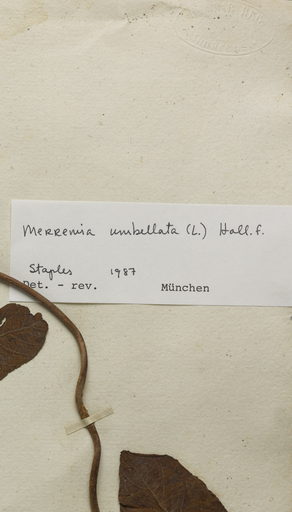 Merremia umbellata (L.) Hall. f.
Staples 1987
Det. - rev. München